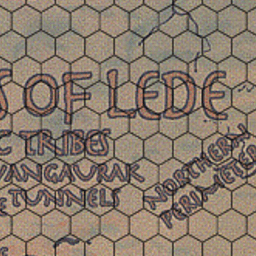 S OF LEDE
C TRIBES
VANGAURAK
E TUNNELS
NORTHERN
PERIMETER